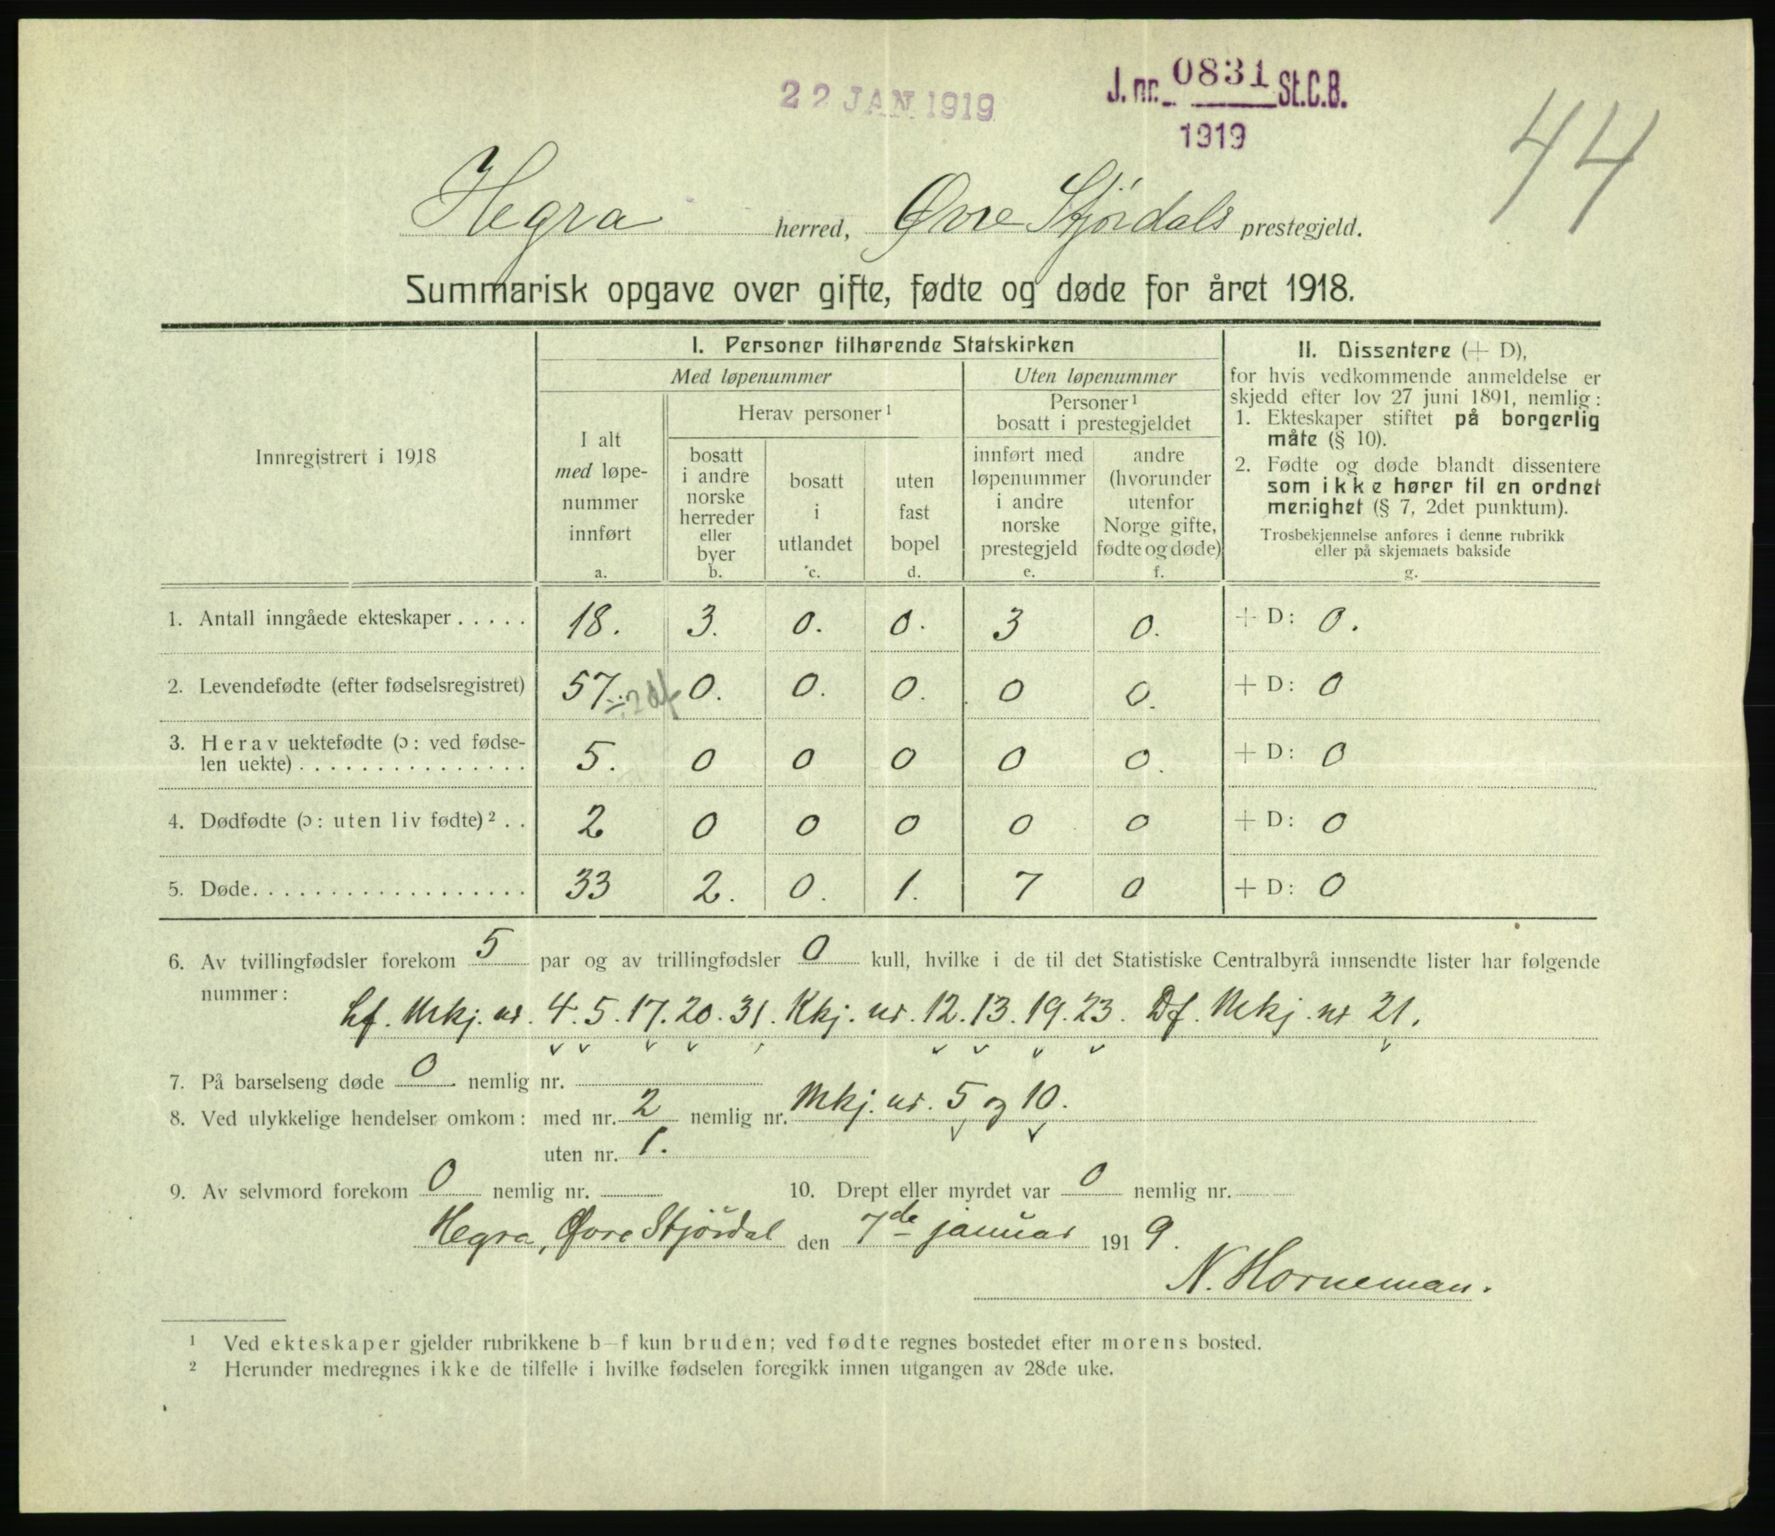 22 JAN 1919
J. nr. 0831 St.C.B.
1919
44
Hegra herred, Øvre Stjørdals prestegjeld.
Summarisk opgave over gifte, fødte og døde for året 1918.
Innregistrert i 1918
I. Personer tilhørende Statskirken
Med løpenummer
Uten løpenummer
I alt
med løpe-
nummer
innført
a.
Herav personer ¹
bosatt
i andre
norske
herreder
eller
byer
b.
bosatt
i
utlandet
c.
uten
fast
bopel
d.
Personer ¹
bosatt i prestegjeldet
innført med
løpenummer
i andre
norske
prestegjeld
e.
andre
(hvorunder
utenfor
Norge gifte,
fødte og døde)
f.
II. Dissentere (+ D),
for hvis vedkommende anmeldelse er
skjedd efter lov 27 juni 1891, nemlig:
1. Ekteskaper stiftet på borgerlig
måte (§ 10).
2. Fødte og døde blandt dissentere
som ikke hører til en ordnet
menighet (§ 7, 2det punktum).
Trosbekjennelse anføres i denne rubrikk
eller på skjemaets bakside
g.
1. Antall inngåede ekteskaper . . . . . 18. 3. 0. 0. 3 0. + D: 0.
2. Levendefødte (efter fødselsregistret) 57. ÷2df 0. 0. 0. 0 0. + D: 0
3. Herav uektefødte (ɔ: ved fødse-
len uekte) . . . . . . . . . . . . . . . 5. 0 0 0 0 0. + D: 0
4. Dødfødte (ɔ: uten liv fødte) ² . . 2 0 0 0 0 0 + D: 0
5. Døde. . . . . . . . . . . . . . . . . . 33 2. 0. 1. 7 0 + D: 0
6. Av tvillingfødsler forekom 5 par og av trillingfødsler 0 kull, hvilke i de til det Statistiske Centralbyrå innsendte lister har følgende
nummer: Lf. Mkj. nr. 4. 5. 17. 20. 31. Kkj. nr. 12. 13. 19. 23. Df. Mkj. nr 21.
7. På barselseng døde 0 nemlig nr.
8. Ved ulykkelige hendelser omkom: med nr. 2 nemlig nr. Mkj. nr. 5 og 10.
uten nr. 1.
9. Av selvmord forekom 0 nemlig nr. 10. Drept eller myrdet var 0 nemlig nr.
Hegra, Øvre Stjørdal den 7de januar 1919.
N. Horneman.
¹ Ved ekteskaper gjelder rubrikkene b—f kun bruden; ved fødte regnes bostedet efter morens bosted.
² Herunder medregnes ikke de tilfelle i hvilke fødselen foregikk innen utgangen av 28de uke.